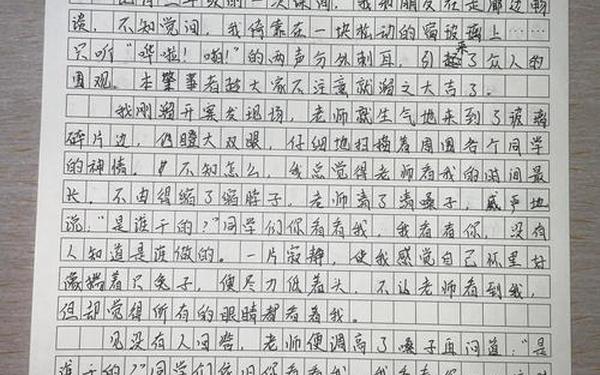 一次课间,我和朋友在走廊边畅
谈,不知觉间,我倚靠在一块松动的窗玻璃上……
只听“哗啦!啪!”的两声分外刺耳,引起来了众人的
围观。本肇事者趁大家不注意就溜之大吉了。
我刚溜开案发现场,老师就生气地来到了玻璃
碎片边,仍瞪大双眼,仔细地扫描着周围各个同学
的神情。不知怎么,我总觉得老师看我的时间最
长,不由得缩了缩脖子,老师清了清嗓子,威严地
说:“是谁干的?”同学们你看看我,我看看你,没有
人知道是谁做的。一片寂静,使我感觉自己怀里好
像揣着只兔子,便尽力低着头,不让老师看到我,
但却觉得所有的眼睛都看着我。
见没有人回答,老师便调高了嗓子再问道:“是
谁干的?”同学们依旧你看看我,我看看你